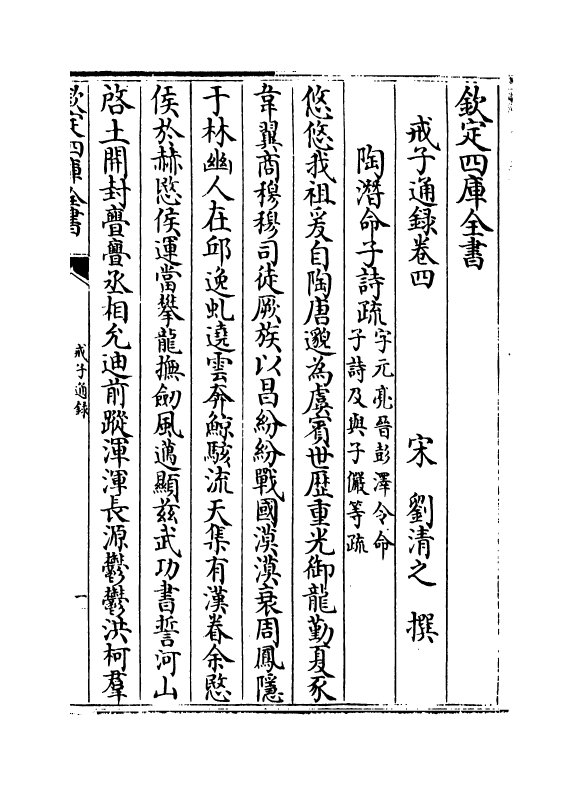 欽定四庫全書
戒子通録卷四
宋 劉清之 撰
陶潛命子詩疏字元亮晉彭澤令命
子詩及與子儼等疏
悠悠我祖爰自陶唐邈為虞賓世歴重光御龍勤夏豕
韋翼商穆穆司徒厥族以昌紛紛戰國漠漠衰周鳳隱
于林幽人在邱逸虬遶雲奔鯨駭流天集有漢眷余愍
侯於赫愍侯運當攀龍撫劒風邁顯兹武功書誓河山
啓土開封亹亹丞相允迪前蹤渾渾長源鬱鬱洪柯羣
欽定四庫全書
戒子通録
一